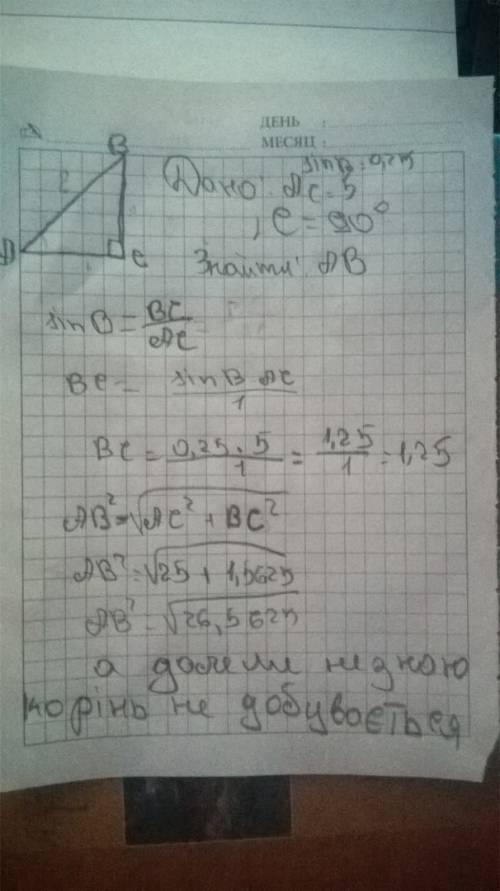 ДЕНЬ :
МЕСЯЦ :
B
A
C
Дано: AC = 5
sin B = 0,25
, C = 90°
Знайти: AB
sin B = BC/AC
BC = sin B AC/1
BC = 0,25 · 5/1 = 1,25/1 = 1,25
AB² = √AC² + BC²
AB² = √25 + 1,5625
AB² = √26,5625
а далі не знаю
корінь не добувається